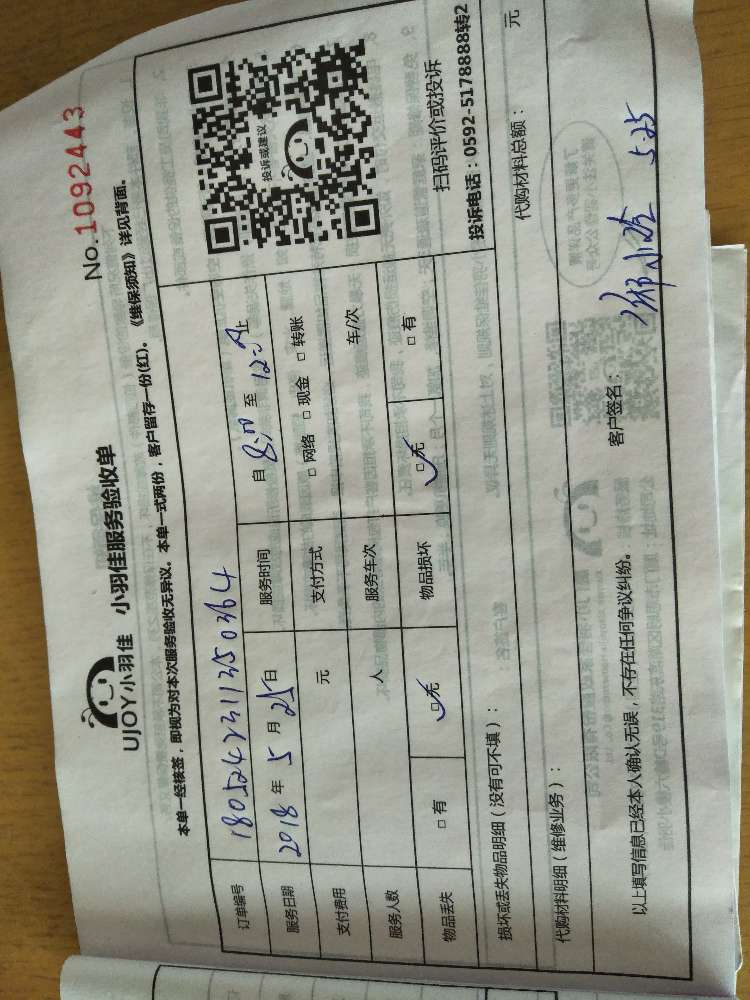 No.1092443
UJOY小羽佳 小羽佳服务验收单
本单一经核签，即视为对本次服务验收无异议。本单一式两份，客户留存一份(红)。《维保须知》详见背面。
订单编号 1805242311350364
服务日期 2018 年 5 月 25 日 服务时间 自 8:00 至 12:00 止
支付费用 元 支付方式 □ 网络 □ 现金 □ 转账
服务人数 人 服务车次 车/次
物品丢失 □ 有 □ 无 物品损坏 □ 无 □ 有
投诉或建议
扫码评价或投诉
投诉电话：0592-5178888转2
损坏或丢失物品明细（没有可不填）：
代购材料明细（维修业务）： 代购材料总额： 元
以上填写信息已经本人确认无误，不存在任何争议纠纷。 客户签名： 5.25